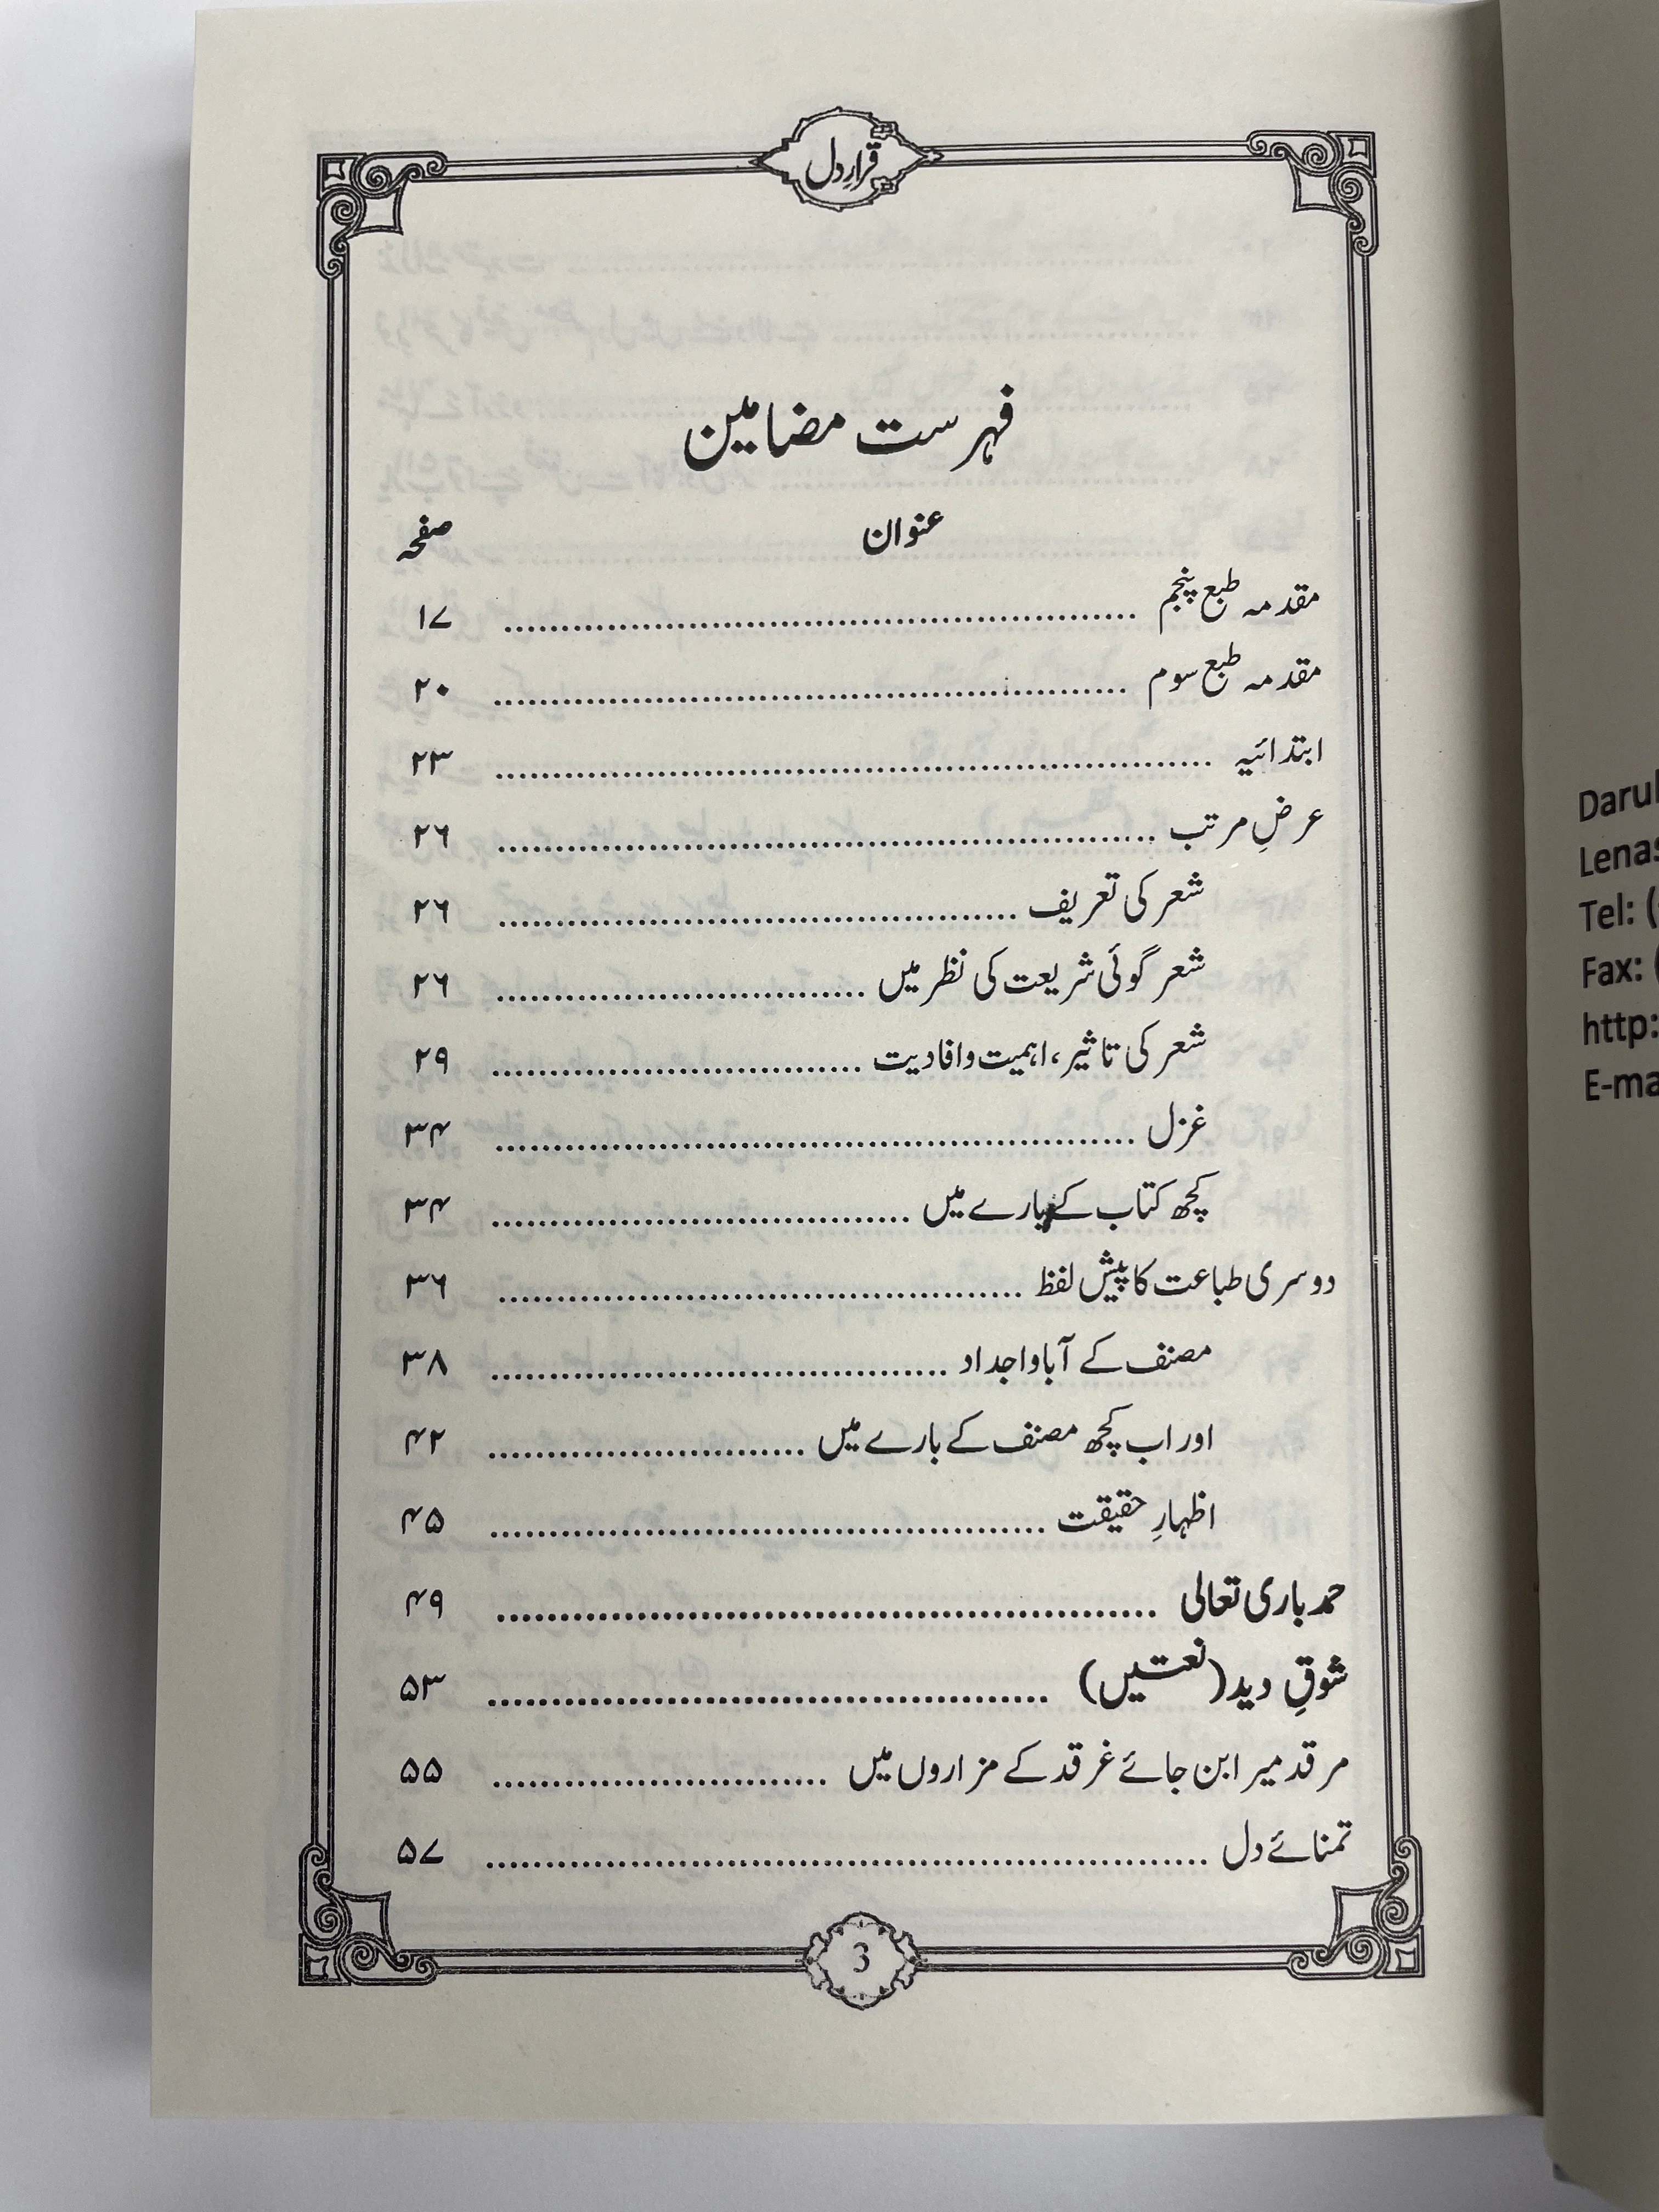 قرارِ دل
فہرست مضامین
عنوان صفحہ
مقدمہ طبع پنجم ........ ۱۷
مقدمہ طبع سوم ........ ۲۰
ابتدائیہ ........ ۲۳
عرضِ مرتب ........ ۲۶
شعر کی تعریف ........ ۲۶
شعر گوئی شریعت کی نظر میں ........ ۲۶
شعر کی تاثیر، اہمیت و افادیت ........ ۲۹
غزل ........ ۳۴
کچھ کتاب کے بارے میں ........ ۳۴
دوسری طباعت کا پیش لفظ ........ ۳۶
مصنف کے آبا و اجداد ........ ۳۸
اور اب کچھ مصنف کے بارے میں ........ ۴۲
اظہارِ حقیقت ........ ۴۵
حمد باری تعالی ........ ۴۹
شوقِ دید (نعتیں) ........ ۵۳
مرقد میرا بن جائے غرقد کے مزاروں میں ........ ۵۵
تمنائے دل ........ ۵۷
3
Darul
Lenas
Tel: (
Fax: (
http:
E-ma